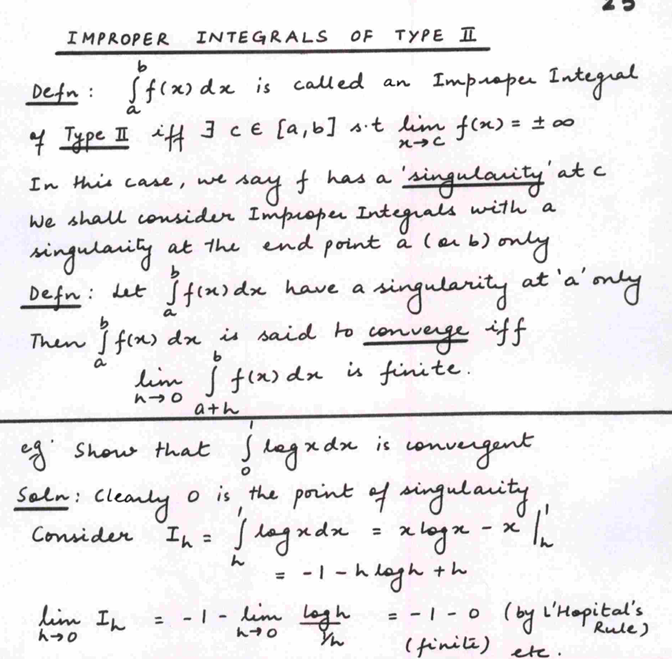 25
IMPROPER INTEGRALS OF TYPE II
Defn : ∫_a^b f(x) dx is called an Improper Integral
of Type II iff ∃ c ∈ [a,b] s.t lim_{x→c} f(x) = ± ∞
In this case, we say f has a 'singularity' at c
We shall consider Improper Integrals with a
singularity at the end point a (or b) only
Defn : Let ∫_a^b f(x) dx have a singularity at 'a' only
Then ∫_a^b f(x) dx is said to converge iff
lim_{h→0} ∫_{a+h}^b f(x) dx is finite.
eg. Show that ∫_0^1 log x dx is convergent
Soln : Clearly 0 is the point of singularity
Consider I_h = ∫_h^1 log x dx = x log x - x |_h^1
= -1 - h log h + h
lim_{h→0} I_h = -1 - lim_{h→0} log h / 1/h = -1 - 0 (by L'Hopital's Rule)
(finite) etc.